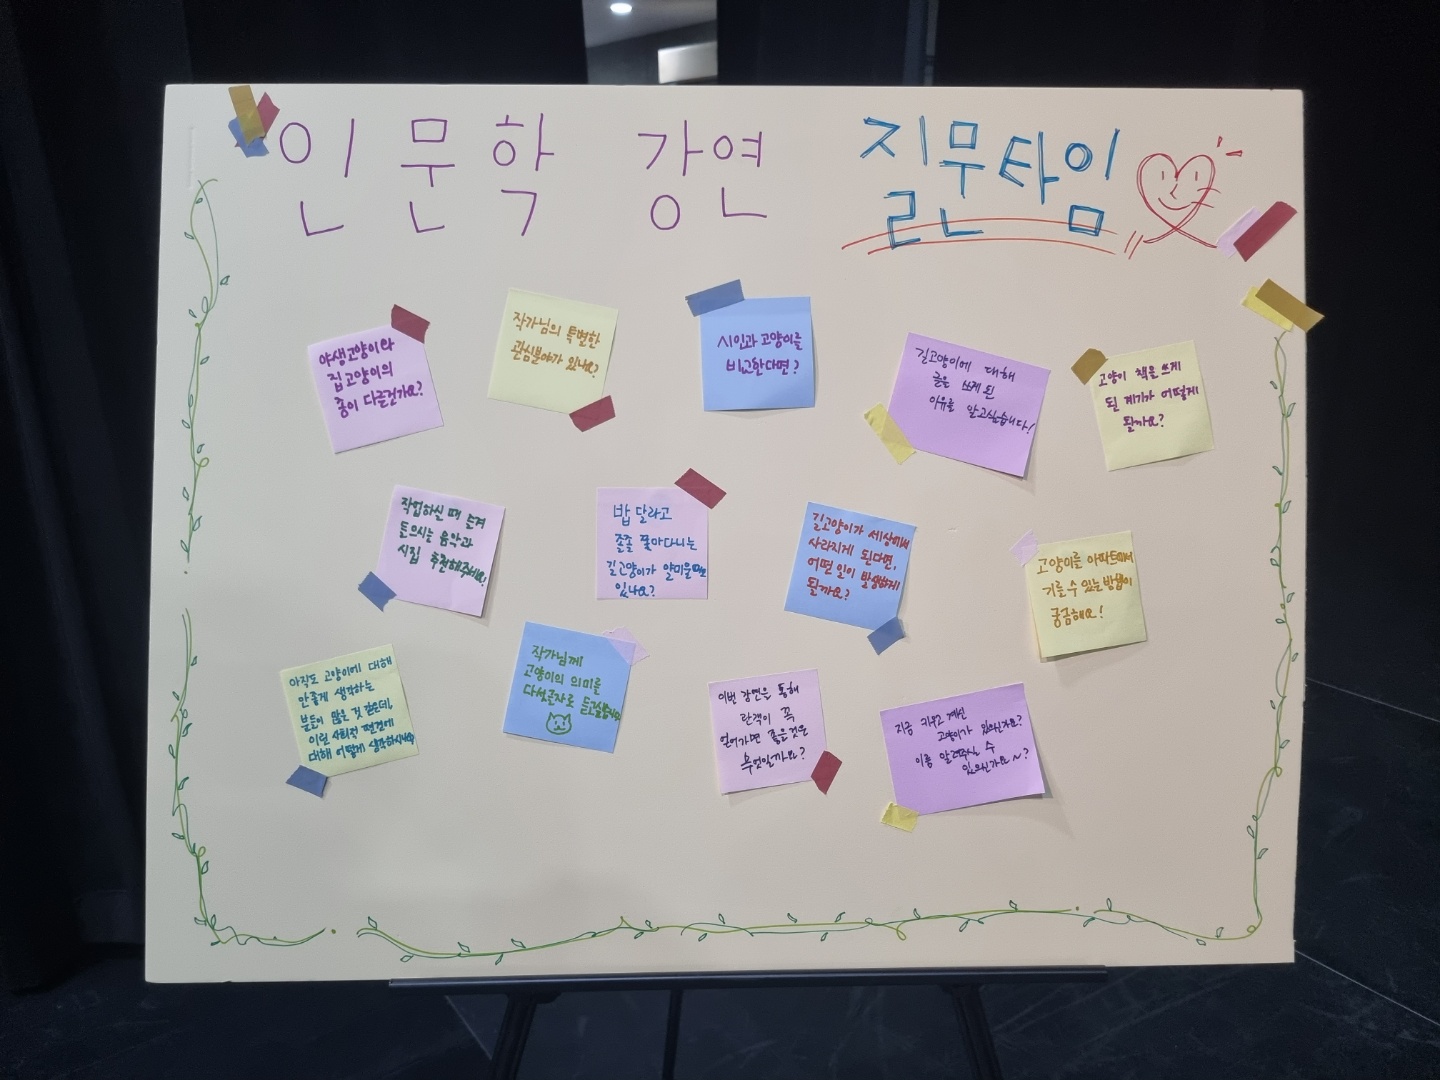 인문학 강연 질문타임
야생고양이랑
집고양이의
종이 다른건가요?
작가님의 특별한
관심분야가 있나요?
시인과 고양이를
비교한다면?
길고양이에 대해
글을 쓰게 된
이유를 알고싶습니다!
고양이 책을 쓰게
된 계기가 어떻게
될까요?
작업하실 때 즐겨
들으시는 음악과
시집 추천해주세요!
밥 달라고
졸졸 쫓아다니는
길고양이가 얄미울때도
있나요?
길고양이가 세상에서
사라지게 된다면,
어떤 일이 발생하게
될까요?
고양이를 아파트에서
키울 수 있는 방법이
궁금해요!
아직도 고양이에 대해
안좋게 생각하는
분들이 많은 것 같은데,
이런 사회적 편견에
대해 어떻게 생각하시나요
작가님께
고양이의 의미를
다섯글자로 듣고싶습니다
이번 강연을 통해
관객이 꼭
얻어가면 좋을것은
무엇일까요?
지금 키우고 계신
고양이가 있으신가요?
이름 알려주실 수
있으신가요~?